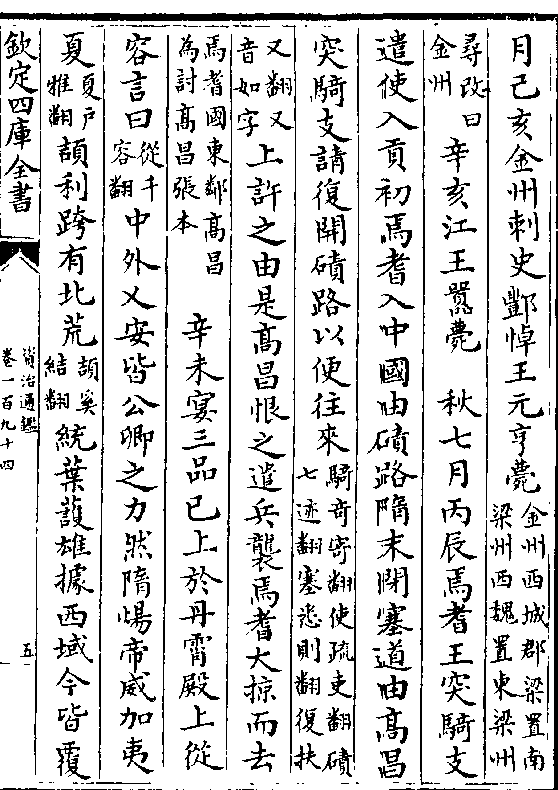 月己亥金州刺史酆悼王元亨薨金州西城郡梁置南梁州西魏置東梁州
尋改曰金州辛亥江王囂薨　秋七月丙辰焉耆王突騎支
遣使入貢初焉耆入中國由磧路隋末閉塞道由高昌
突騎支請復開磧路以便往來騎竒寄翻使疏吏翻磧七迹翻塞悉則翻復扶
又翻又音如字上許之由是高昌恨之遣兵襲焉耆大掠而去
焉耆國東鄰高昌為討高昌張本　辛未宴三品已上於丹霄殿上從
容言曰從千容翻中外乂安皆公卿之力然隋煬帝威加夷
夏夏戶雅翻頡利跨有北荒頡奚結翻統葉䕶雄據西域今皆覆
欽定四庫全書
資治通鑑
卷一百九十四
五